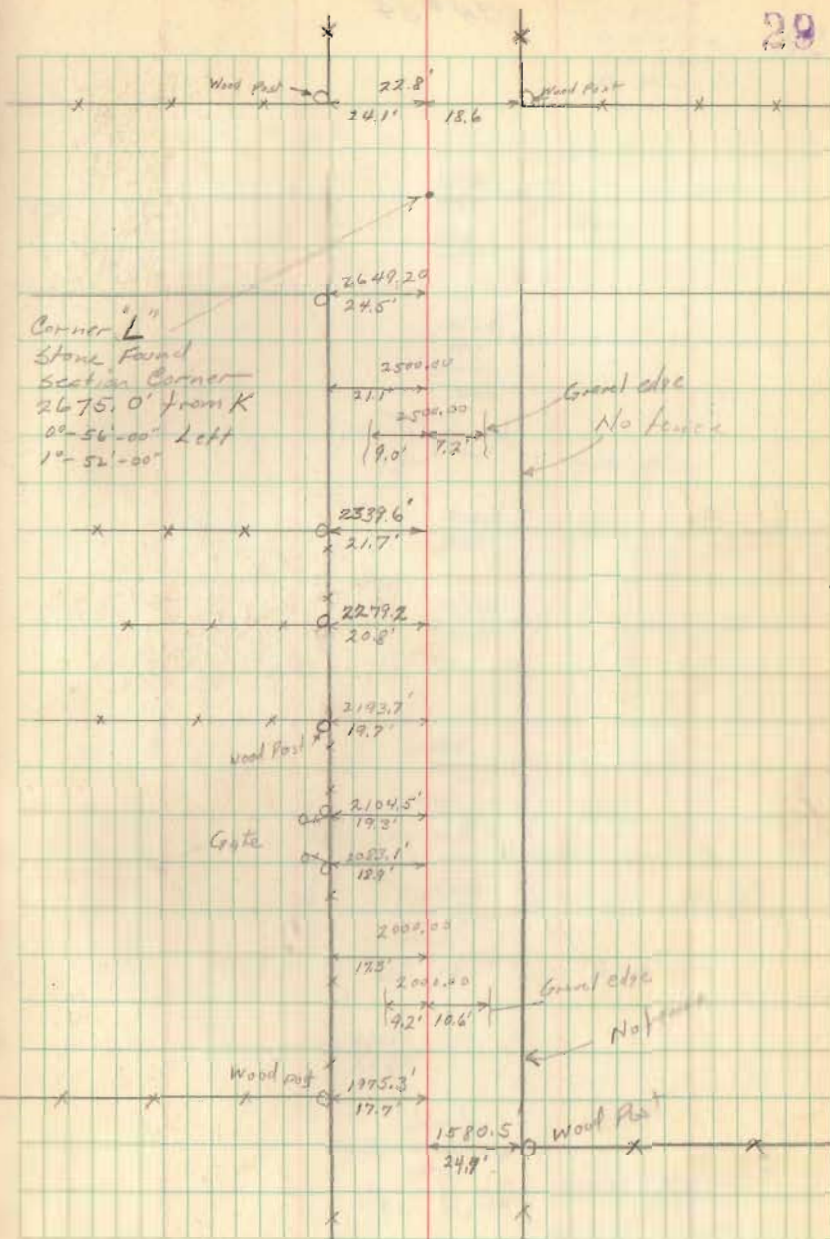 29
Wood Post
22.8'
Wood Post
24.1'
18.6
2649.20
24.5'
Corner "L"
Stone Found
Section Corner
2675.0' from K
0°-56'-00" Left
1°-52'-00"
2500.00
21.1'
2500.00
9.0'
7.2'
Gravel edge
No fence
2339.6'
21.7'
2279.2
20.8'
2193.7'
19.7'
Wood Post
2104.5'
19.3'
Gate
2083.1'
18.9'
2000.00
17.5'
2000.00
9.2'
10.6'
Gravel edge
No fence
Wood post
1975.3'
17.7'
1580.5'
Wood Post